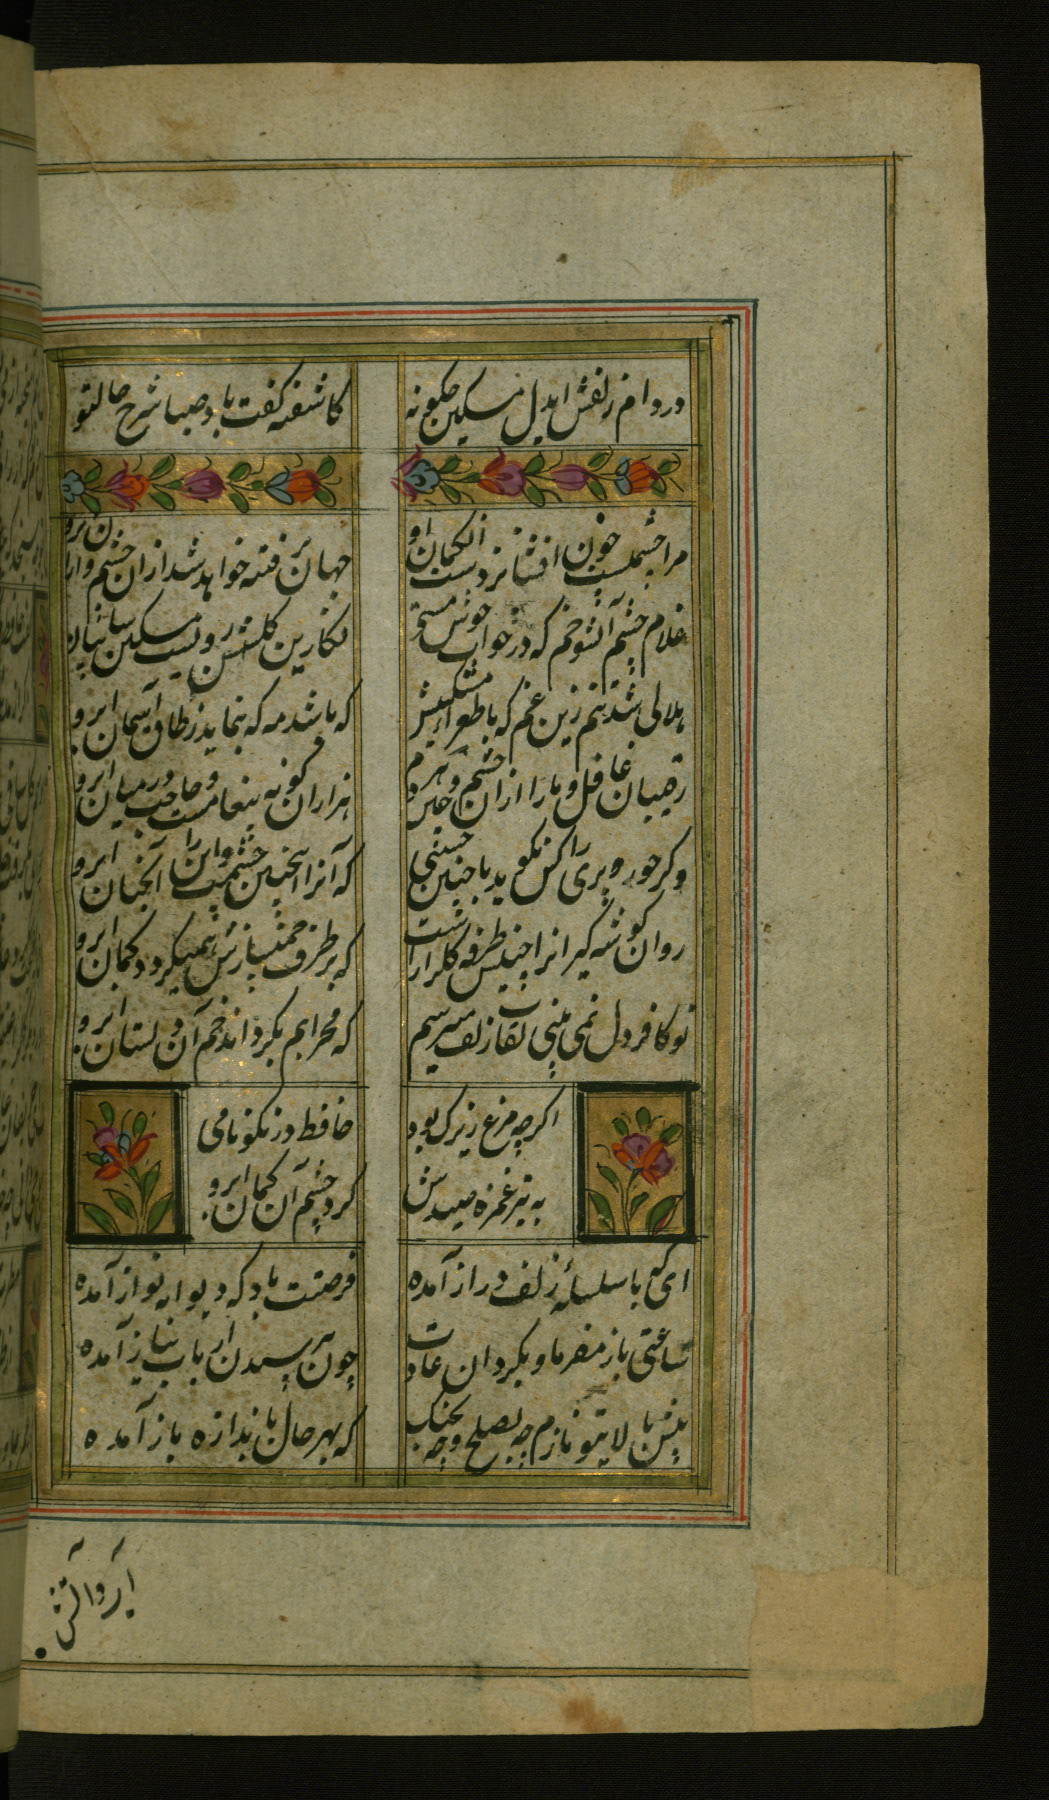 در دام زلفش ایدل مسکین چگونه
کاشفته گفت باد صبا شرح حالتو
مرا چشمیست خون افشان ز دست آن کمان ابرو
جهان پر فتنه خواهد شد از ان چشم و ازان ابرو
غلام چشم آن شوخم که در خواب خوش مستی
نگارین گلشنش رویست مسکین سایبان ابرو
هلالی شد تنم زین غم که با طغرای مشکینش
که باشد مه که بنماید ز طاق آسمان ابرو
رقیبان غافل و ما را از ان چشم و جبین هر دم
هزاران گونه پیغامست و حاجب در میان ابرو
و گر حور و پری را کس نگوید با چنین حسنی
که آنرا اینچنین چشمست و این را آنچنان ابرو
روان گوشه گیرانرا جبینش طرفه گلزاراست
که بر طرف چمنزارش نمیگردد کمان ابرو
تو کافر دل نمی بینی نقاب زلف میترسم
که محرابم بگرداند خم آن دلستان ابرو
اگر چه مرغ زیرک بود
حافظ در نکونامی
به تیر غمزه صیدش
کرد چشم آن کمان ابرو
ای که با سلسلهٔ زلف دراز آمده
فرصتت باد که دیوانه نواز آمده
ساعتی ناز مفرما و بگردان عادت
چون بپرسیدن ارباب نیاز آمده
پیش بالایتو نازم چه بصلح و چه بجنگ
که بهر حال باندازه باز آمده
آب و آتش